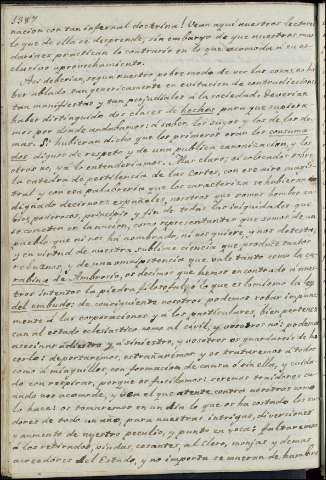 1387
nacion con tan infernal doctrina! Vean aqui nuestros lectores
lo que de ella se desprende, sin embargo de que nuestros mas
darines practican lo contrario en lo que acomoda a su es-
clusivo aprovechamiento.
Asi deberian, segun nuestro pobre modo de ver las cosas, no ha-
ber ablado tan genericamente en evitacion de contradicciones
tan manifiestas y tan perjudiciales a la sociedad. Deberian
haber distinguido dos clases de hechos, para que supiera-
mos por donde andabamos; á saber los suyos y los de los de-
mas. Si hubieran dicho que los primeros eran los consuma-
dos dignos de respeto, y de una publica canonizacion, y los
otros no, ya lo entenderiamos. Mas claro; si colocados en
la catedra de pestilencia de las Cortes, con ese aire magis-
tral y con esa palabreria que los caracteriza se hubieran
dignado decirnos: españoles, nosotros que somos hombres sa-
bios, poderosos, principio y fin de todas las iniquidades que
se cometen en la nacion, como representantes que somos de un
pueblo que ni nos ha nombrado, ni nos quiere, y nos detesta;
y en virtud de nuestra sublime ciencia que produce tantos
rebuznos, y de una omnipotencia que vale tanto como la ca-
rabina de Ambrosio, os decimos que hemos encontrado a nues-
tros sistemas la piedra filosofal, o lo que es lo mismo la ley
del embudo; de consiguiente nosotros podemos robar impune-
mente á las corporaciones y á los particulares, bien pertenez-
can al estado eclesiastico como al civil, y vosotros no: podemos
asesinar a diestra y á siniestra, y vosotros os guardareis de ha-
cerlo: deportaremos, estrañaremos y os trataremos a todos
como á miquillos, con formacion de causa ó sin ella, y cuida-
do con respirar, porque os fusilamos: seremos traidores cu-
ando nos acomode, y en el que atente contra nosotros como
lo hace: os tomaremos en un dia lo que os ha costado los su-
dores de todo un año, para nuestras intrigas, diversiones
y aumento de nuestro peculio, y punto en boca: faltaremos
á los retirados, viudas, cesantes, al Clero, monjas y demas
acreedores del Estado, y no importa se mueran de hambre